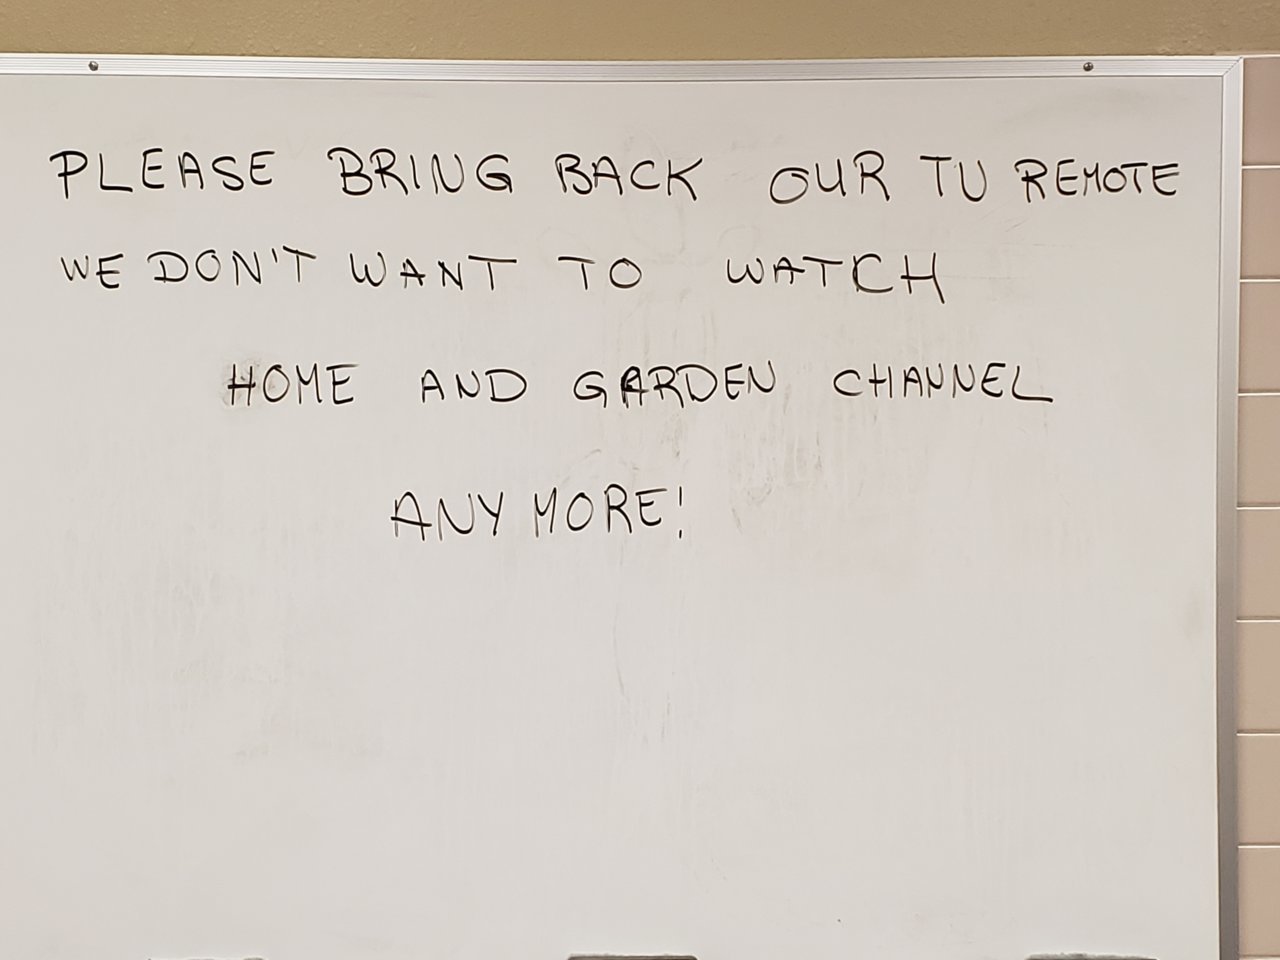 PLEASE BRING BACK OUR TV REMOTE
WE DON'T WANT TO WATCH
HOME AND GARDEN CHANNEL
ANY MORE!